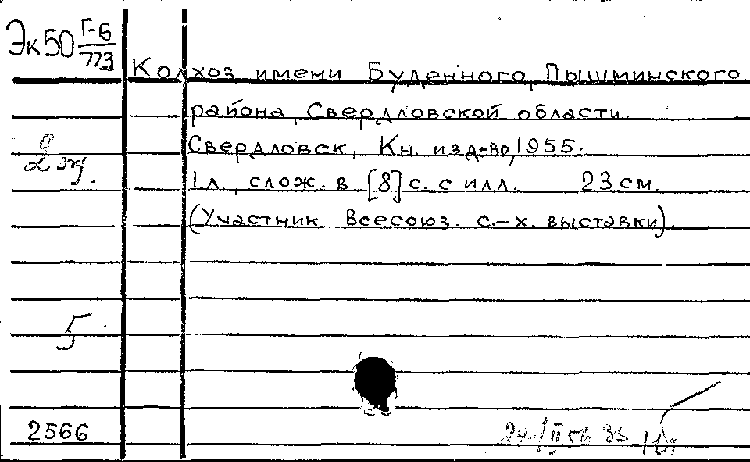 Эк50 Г-6/773
Колхоз имени Буденного, Пышминского
района, Свердловской области.
Свердловск, Кн. изд-во, 1955.
1 л., слож. в [8] с. с илл. 23 см.
(Участник Всесоюз. с.-х. выставки)
2 эк.
5
2566